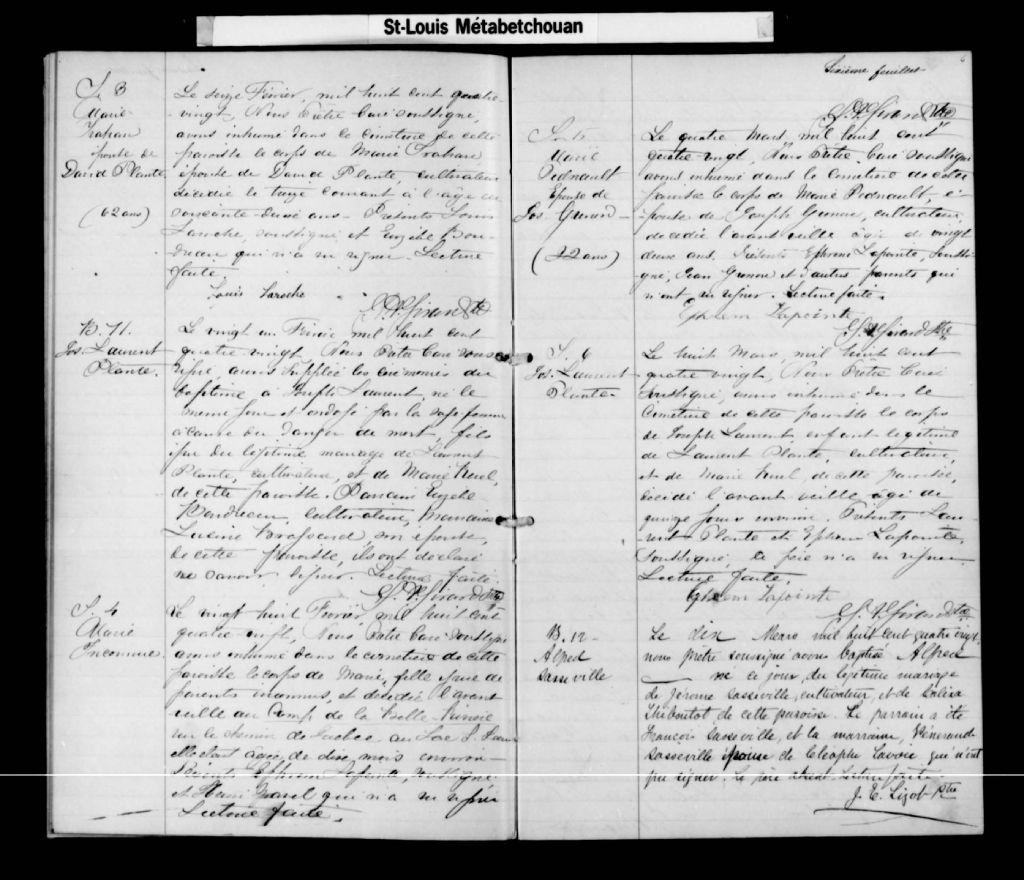 St-Louis Métabetchouan
S. 3
Marie
Trahan
épouse de
David Plante
(62 ans)
Le seize Février, mil huit cent quatre
vingt, Nous Prêtre Curé soussigné,
avons inhumé dans le cimetière de cette
paroisse le corps de Marie Trahan,
épouse de David Plante, cultivateur
décédée le treize courant à l'âge de
soixante-deux ans. Présents Louis
Laroche, soussigné et
qui n'a su signer. Lecture
faite.
Louis Laroche
B. 11.
Jos. Laurent
Plante.
Le vingt un Février mil huit cent
quatre vingt, Nous Prêtre Curé sous
signé, avons suppléé les cérémonies du
baptême, à Joseph Laurent, né le
même jour et ondoyé par la sage femme
à cause du danger de mort, fils
issu du légitime mariage de Laurent
Plante, cultivateur, et de Marie
de cette paroisse. Parrain
cultivateur, Marraine
son épouse,
de cette paroisse, ils ont déclaré
ne savoir signer. Lecture faite.
S. 4
Marie
Inconnue.
Le vingt huit Février mil huit cent
quatre vingt, Nous Prêtre Curé soussigné
avons inhumé dans le cimetière de cette
paroisse le corps de Marie, fille issue de
parents inconnus, et décédée l'avant
veille au Camp de la Belle Rivière
sur le chemin de Québec au Lac St. Jean
âgée de dix mois environ
Présents Ephrem Lapointe, soussigné
et qui n'a su signer
Lecture faite.
Sixième feuillet
6
S. 5
Marie
Pednault
Epouse de
Jos.
(22 ans)
Le quatre Mars, mil huit cent
quatre vingt, Nous Prêtre Curé soussigné
avons inhumé dans le cimetière de cette
paroisse le corps de Marie Pednault, é-
pouse de Joseph cultivateur,
décédée l'avant veille âgée de vingt
deux ans. Présents Ephrem Lapointe, soussi-
gné, Jean et d'autres parents qui
n'ont su signer. Lecture faite.
Ephrem Lapointe
S. 6
Jos. Laurent
Plante
Le huit Mars, mil huit cent
quatre vingt, Nous Prêtre Curé
soussigné, avons inhumé dans le
cimetière de cette paroisse le corps
de Joseph Laurent, enfant légitime
de Laurent Plante, cultivateur,
et de Marie de cette paroisse,
décédé l'avant veille âgé de
quinze jours environ. Présents Lau-
rent Plante et Ephrem Lapointe,
soussigné, le père n'a su signer.
Lecture faite.
Ephrem Lapointe
B. 12
Alfred
Sasseville
Le dix Mars mil huit cent quatre vingt
nous prêtre soussigné avons baptisé Alfred
né ce jour, du légitime mariage
de Jérome Sasseville, cultivateur, et de
Thiboutot de cette paroisse. Le parrain a été
François Sasseville, et la marraine,
Sasseville épouse de Cléophe Lavoie qui n'ont
pu signer. Le père absent. Lecture faite.
J. E. Lizot Ptre